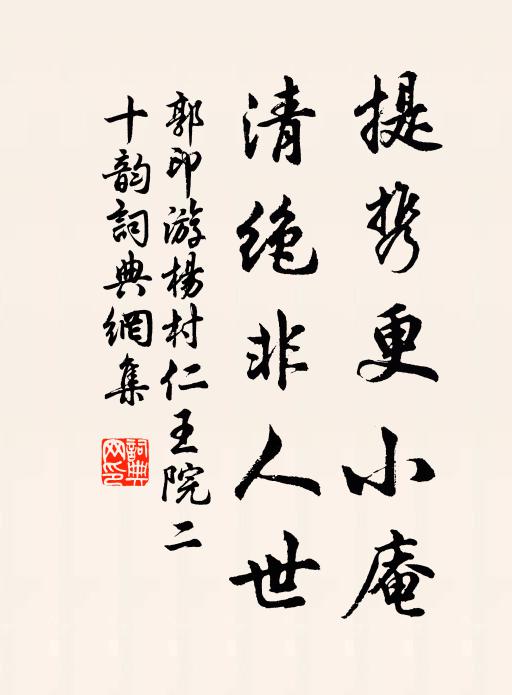 提携更小庵
清绝非人世
郭印游杨村仁王院二
十韵词典網集
詞典網印